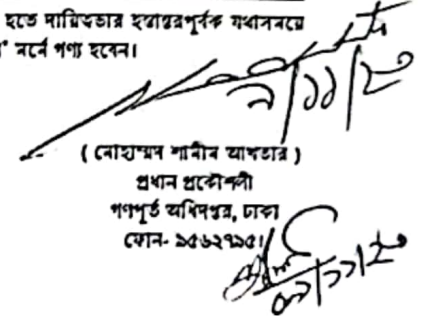 হতে দায়িত্বভার হস্তান্তরপূর্বক যথাসময়ে
মর্মে গণ্য হবেন।
( মোহাম্মদ শামীম আখতার )
প্রধান প্রকৌশলী
গণপূর্ত অধিদপ্তর, ঢাকা
ফোন- ৯৫৬২৭৯৫।